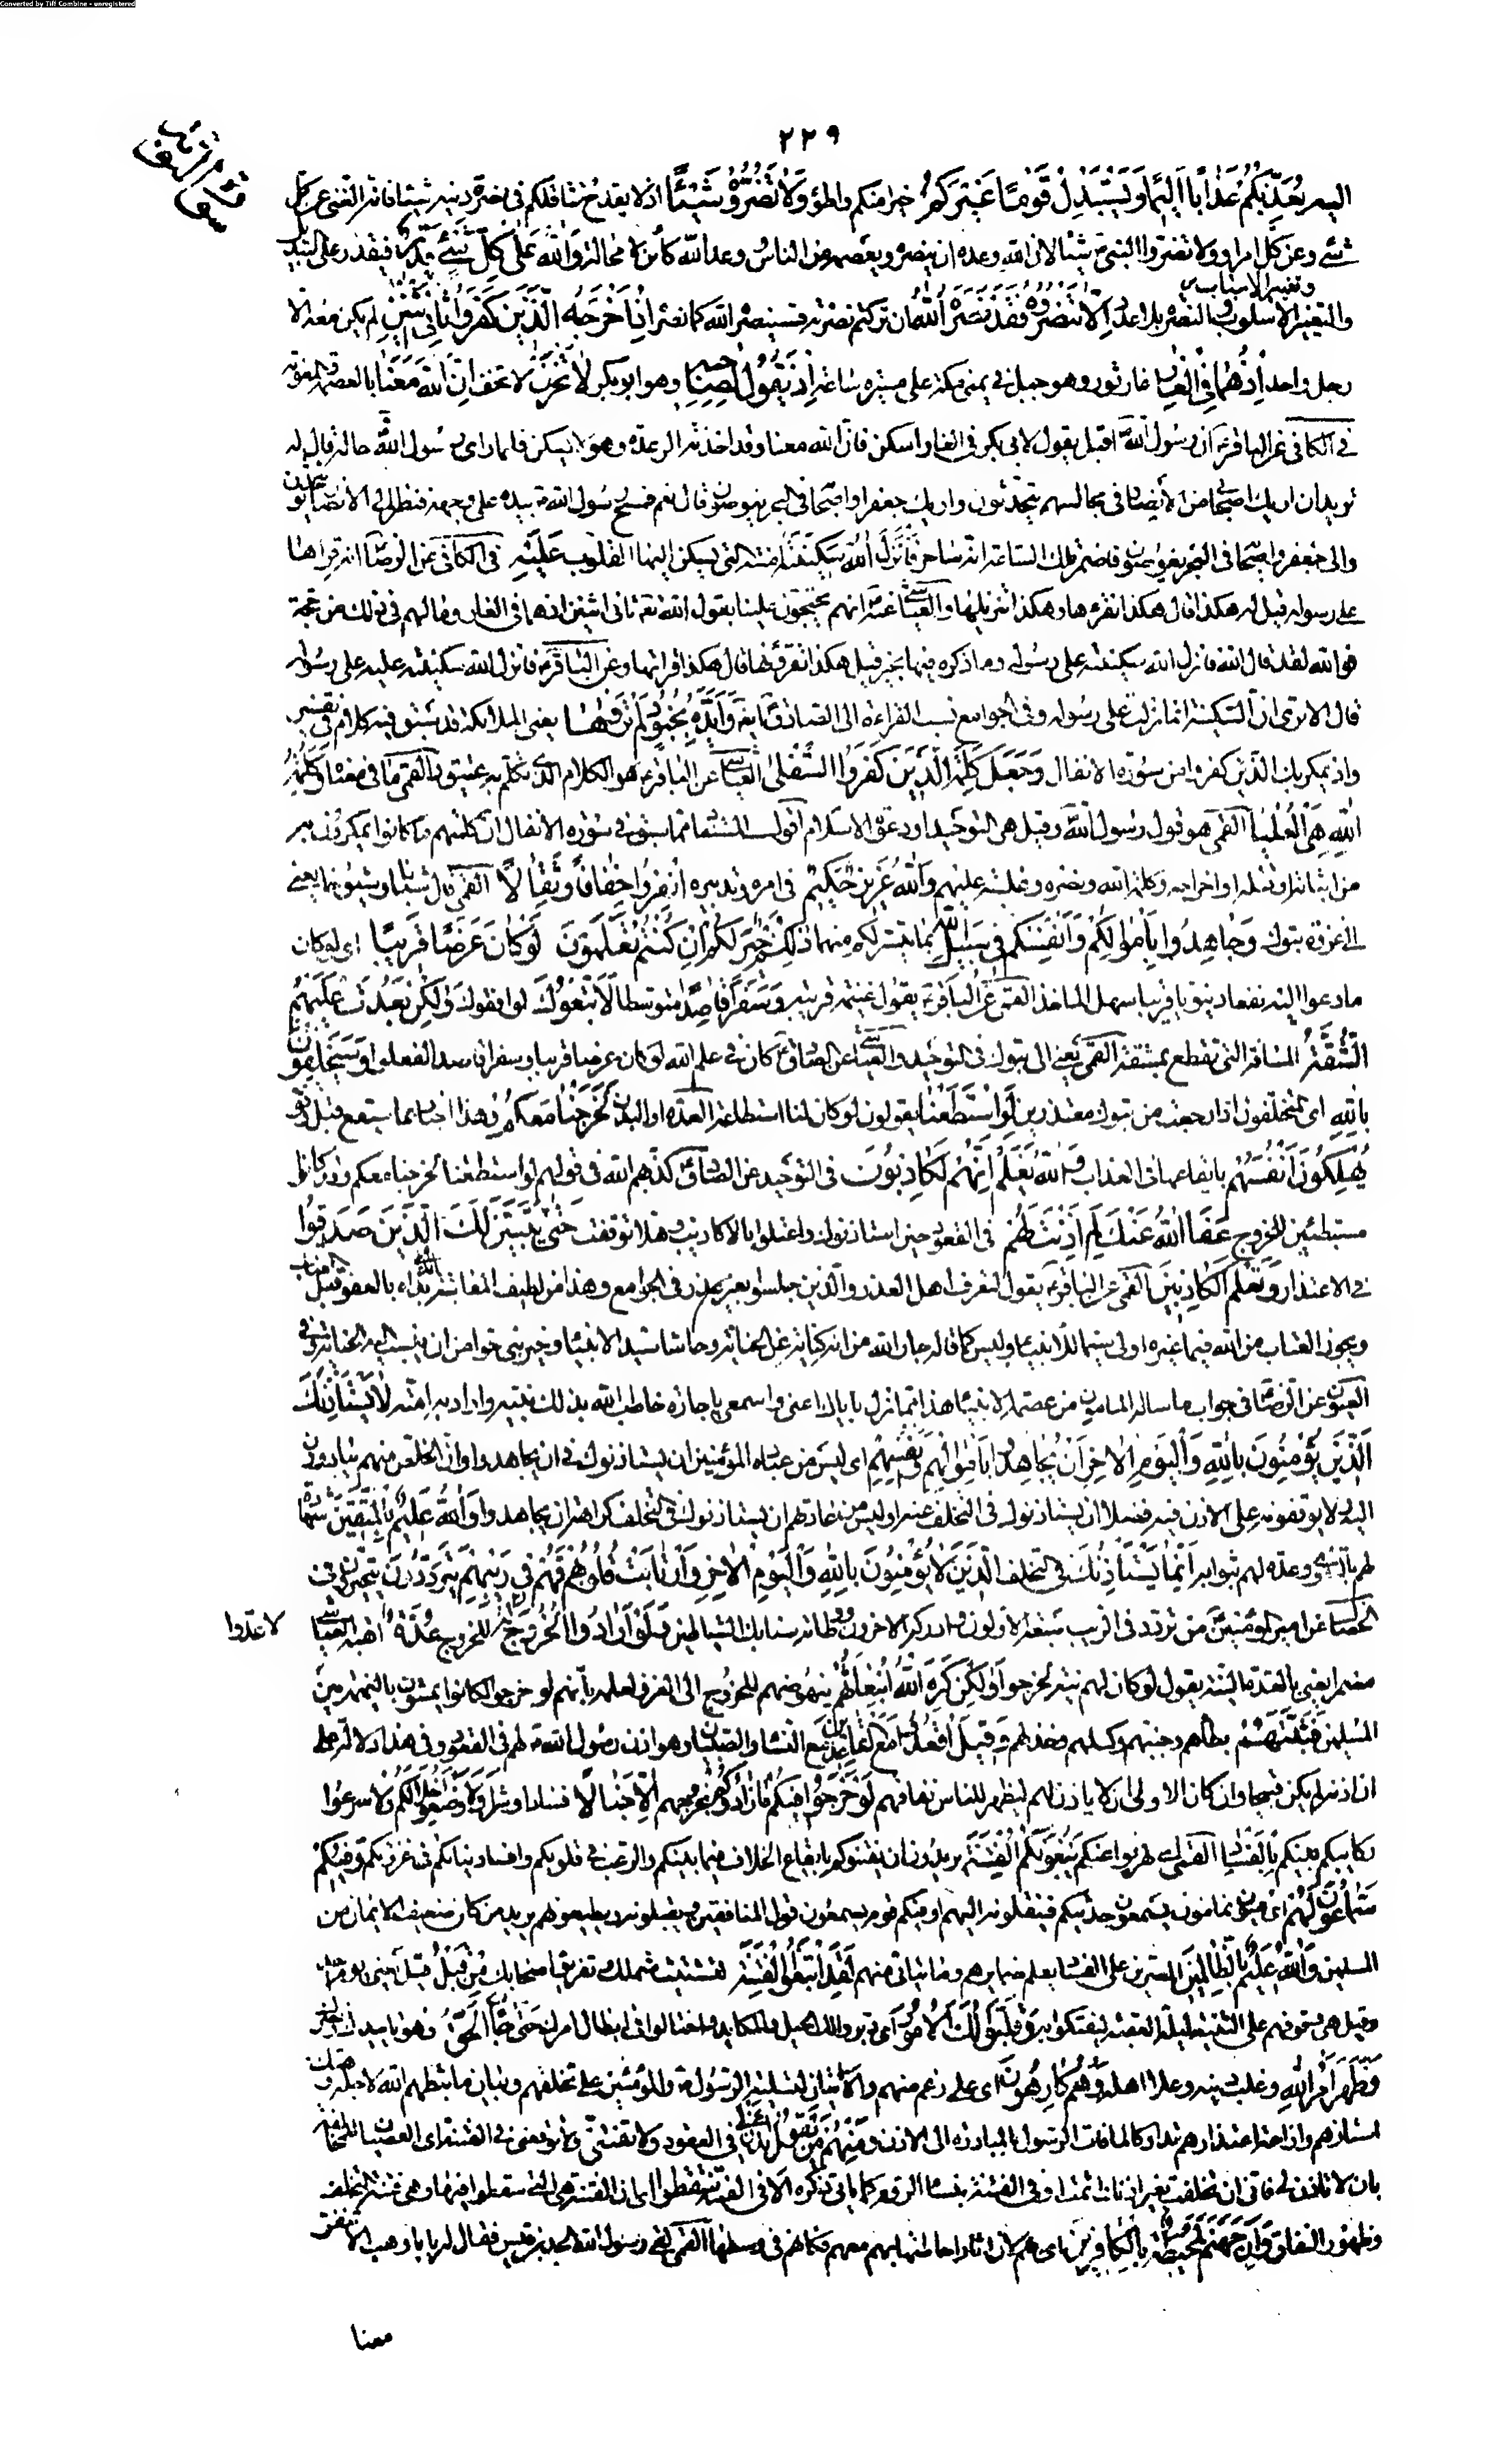 Converted by Tiff Combine - unregistered
٢٢٩
اليه يعذبكم عذابا اليما ويستبدل قوما غيركم خيرا منكم واطوع ولا تضروه شيئا اذ لا يقدح تثاقلكم في نصرة دينه شيئا فانه الغني عن كل
شئ وعن كل امر او ولا تضروا النبي شيئا لان الله وعده ان ينصره ويعصمه من الناس ووعد الله كائن لا محالة والله على كل شئ قدير فيقدر على التبديل
وتغيير الاسباب
والنصرة بلا مدد الا تنصروه فقد نصره الله ان تركتم نصرته فسينصره الله كما نصره اذ اخرجه الذين كفروا ثاني اثنين لم يكن معه الا
رجل واحد اذ هما في الغار غار ثور وهو جبل في يمنى مكة على مسيرة ساعة اذ يقول لصاحبه وهو ابو بكر لا تحزن لا تخف ان الله معنا بالعصمة والمعونة
في الكافي عن الباقر ان رسول الله اقبل يقول لابي بكر في الغار اسكن فان الله معنا وقد اخذته الرعدة وهو لا يسكن فلما راى رسول الله حاله قال له
تريد ان اريك اصحابي من الانصار في مجالسهم يتحدثون واريك جعفرا واصحابه في البحر يغوصون قال نعم فمسح رسول الله بيده على وجهه فنظر الى الانصار يتحدثون
والى جعفر واصحابه في البحر يغوصون فاضمر تلك الساعة انه ساحر فانزل الله سكينته امنته التي يسكن اليها القلوب عليه في الكافي عن الرضا انه قراها
على رسوله قيل له هكذا قال هكذا نقرؤها وهكذا تنزيلها والعياشي عنه انهم يحتجون علينا بقول الله ثاني اثنين اذ هما في الغار وما لهم في ذلك من حجة
فوالله لقد قال الله فانزل الله سكينته على رسوله وما ذكره فيها بخير قيل هكذا تقرؤنها قال هكذا قراتها وعن الباقر فانزل الله سكينته على رسوله
قال الا ترى ان السكينة انما نزلت على رسوله وفي الجوامع نسب القراءة الى الصادق ايضا وايده بجنود لم تروها يعني الملائكة قد سبق فيه كلام في تفسير
واذ يمكر بك الذين كفروا من سورة الانفال وجعل كلمة الذين كفروا السفلى العياشي عن الباقر هو الكلام الذي تكلم به عتيق والقمي ما في معناه وكلمة
الله هي العليا القمي هو قول رسول الله وقيل هي التوحيد او دعوة الاسلام اقول المستفاد مما سبق في سورة الانفال ان كلمتهم ما كانوا يمكرون به
من اثباته او قتله او اخراجه وكلمة الله ونصره وغلبته عليهم والله عزيز حكيم في امره وتدبيره انفروا خفافا وثقالا القمي قال شبابا وشيوخا يعني
الى غزوة تبوك وجاهدوا باموالكم وانفسكم في سبيل الله بما تيسر لكم منهما ذلكم خير لكم ان كنتم تعلمون لو كان عرضا قريبا اي لو كان
ما دعوا اليه نفعا دنيويا قريبا سهل الماخذ القمي عن الباقر يقول غنيمة قريبة وسفرا قاصدا متوسطا لاتبعوك لوافقوك ولكن بعدت عليهم
الشقة المسافة التي تقطع بمشقة القمي يعني الى تبوك في التوحيد والعياشي عن الصادق كان في علم الله لو كان عرضا قريبا وسفرا قاصدا لفعلوا وسيحلفون
بالله اي المتخلفون اذا رجعت من تبوك معتذرين لو استطعنا يقولون لو كان لنا استطاعة العدة او البدن لخرجنا معكم وهذا اخبار بما سيقع قبل وقوعه
يهلكون انفسهم بايقاعها في العذاب والله يعلم انهم لكاذبون في التوحيد عن الصادق كذبهم الله في قولهم لو استطعنا لخرجنا معكم وقد كانوا
مستطيعين للخروج عفا الله عنك لم اذنت لهم في القعود حين استاذنوك واعتلوا بالاكاذيب وهلا توقفت حتى يتبين لك الذين صدقوا
في الاعتذار وتعلم الكاذبين القمي عن الباقر يقول لتعرف اهل العذر والذين جلسوا بغير عذر في الجوامع وهذا من لطيف المعاتبة بداه بالعفو قبل العتاب
ويجوز العتاب من الله فيما غيره اولى سيما للانبياء وليس كما قاله جار الله من انه كناية عن الجناية وحاشا سيد الانبياء وخير بني حوا من ان ينسب اليه الجناية في
العيون عن الرضا في جواب ما ساله المامون من عصمة الانبياء هذا مما نزل باياك اعني واسمعي يا جارة خاطب الله بذلك نبيه واراد به امته لا يستاذنك
الذين يؤمنون بالله واليوم الاخر ان يجاهدوا باموالهم وانفسهم اي ليس من عادة المؤمنين ان يستاذنوك في ان يجاهدوا وان الخلص منهم يبادرون
اليه ولا يوقفونه على الاذن فيه فضلا ان يستاذنوك في التخلف عنه او ليس من عادتهم ان يستاذنوك في التخلف كراهة ان يجاهدوا والله عليم بالمتقين شهادة
لهم بالتقوى وعدة لهم بثوابه انما يستاذنك في التخلف الذين لا يؤمنون بالله واليوم الاخر وارتابت قلوبهم فهم في ريبهم يترددون يتحيرون في
الخصال عن امير المؤمنين من تردد في الريب سبقه الاولون وادركه الاخرون ووطئته سنابك الشياطين ولو ارادوا الخروج لاعدوا له للخروج عدة اهبة العياشي
لاعدوا
مضمرا يعني بالعدة النية يقول لو كان لهم نية لخرجوا ولكن كره الله انبعاثهم نهوضهم للخروج الى الغزو لعلمه بانهم لو خرجوا لكانوا يمشون بالنميمة بين
المسلمين فثبطهم بطاهم وجبنهم وكسلهم وخذلهم وقيل اقعدوا مع القاعدين مع النساء والصبيان وهو اذن رسول الله لهم في القعود وفي هذا دلالة على
ان اذنه لم يكن قبيحا وان كان الاولى ان لا ياذن لهم ليظهر للناس نفاقهم لو خرجوا فيكم ما زادوكم بخروجهم الا خبالا فسادا وشرا ولاوضعوا خلالكم ولاسرعوا
ركايبهم بينكم بالفساد القمي اي لهربوا عنكم يبغونكم الفتنة يريدون ان يفتنوكم بايقاع الخلاف فيما بينكم والرعب في قلوبكم وافساد نياتكم في غزوتكم وفيكم
سماعون لهم اي عيون نمامون يسمعون حديثكم فينقلونه اليهم او فيكم قوم يسمعون قول المنافقين ويقبلونه ويطيعونهم يريد من كان ضعيف الايمان من
المسلمين والله عليم بالظالمين المصرين على الفساد يعلم ضمايرهم وما يتاتى منهم لقد ابتغوا الفتنة لتشتيت شملك وتفريق اصحابك من قبل قيل يعني يوم احد
وقيل هي وقوفهم على الثنية ليلة العقبة ليفتكوا به وقلبوا لك الامور اي دبروا لك الحيل والمكايد واحتالوا في ابطال امرك حتى جاء الحق وهو تاييدك ونصرك
وظهر امر الله وغلب دينه وعلا اهله وهم كارهون اي على رغم منهم والايتان لتسلية الرسول والمؤمنين على تخلفهم وبيان ما ثبطهم الله لاجله وهتك
استارهم وازاحة اعتذارهم تداركا لما فات الرسول بالمبادرة الى الاذن ومنهم من يقول ائذن لي في القعود ولا تفتني ولا توقعني في الفتنة اي العصيان والمخالفة
بان لا تاذن لي فاني ان تخلفت بغير اذنك اثمت او في الفتنة بنساء الروم كما ياتي ذكره الا في الفتنة سقطوا اي ان الفتنة هي التي سقطوا فيها وهي فتنة التخلف
وظهور النفاق وان جهنم لمحيطة بالكافرين اي بهم لان اثار احاطتها بهم معهم فكانهم في وسطها القمي لقي رسول الله الجد بن قيس فقال له يا با وهب الا تنفر
معنا